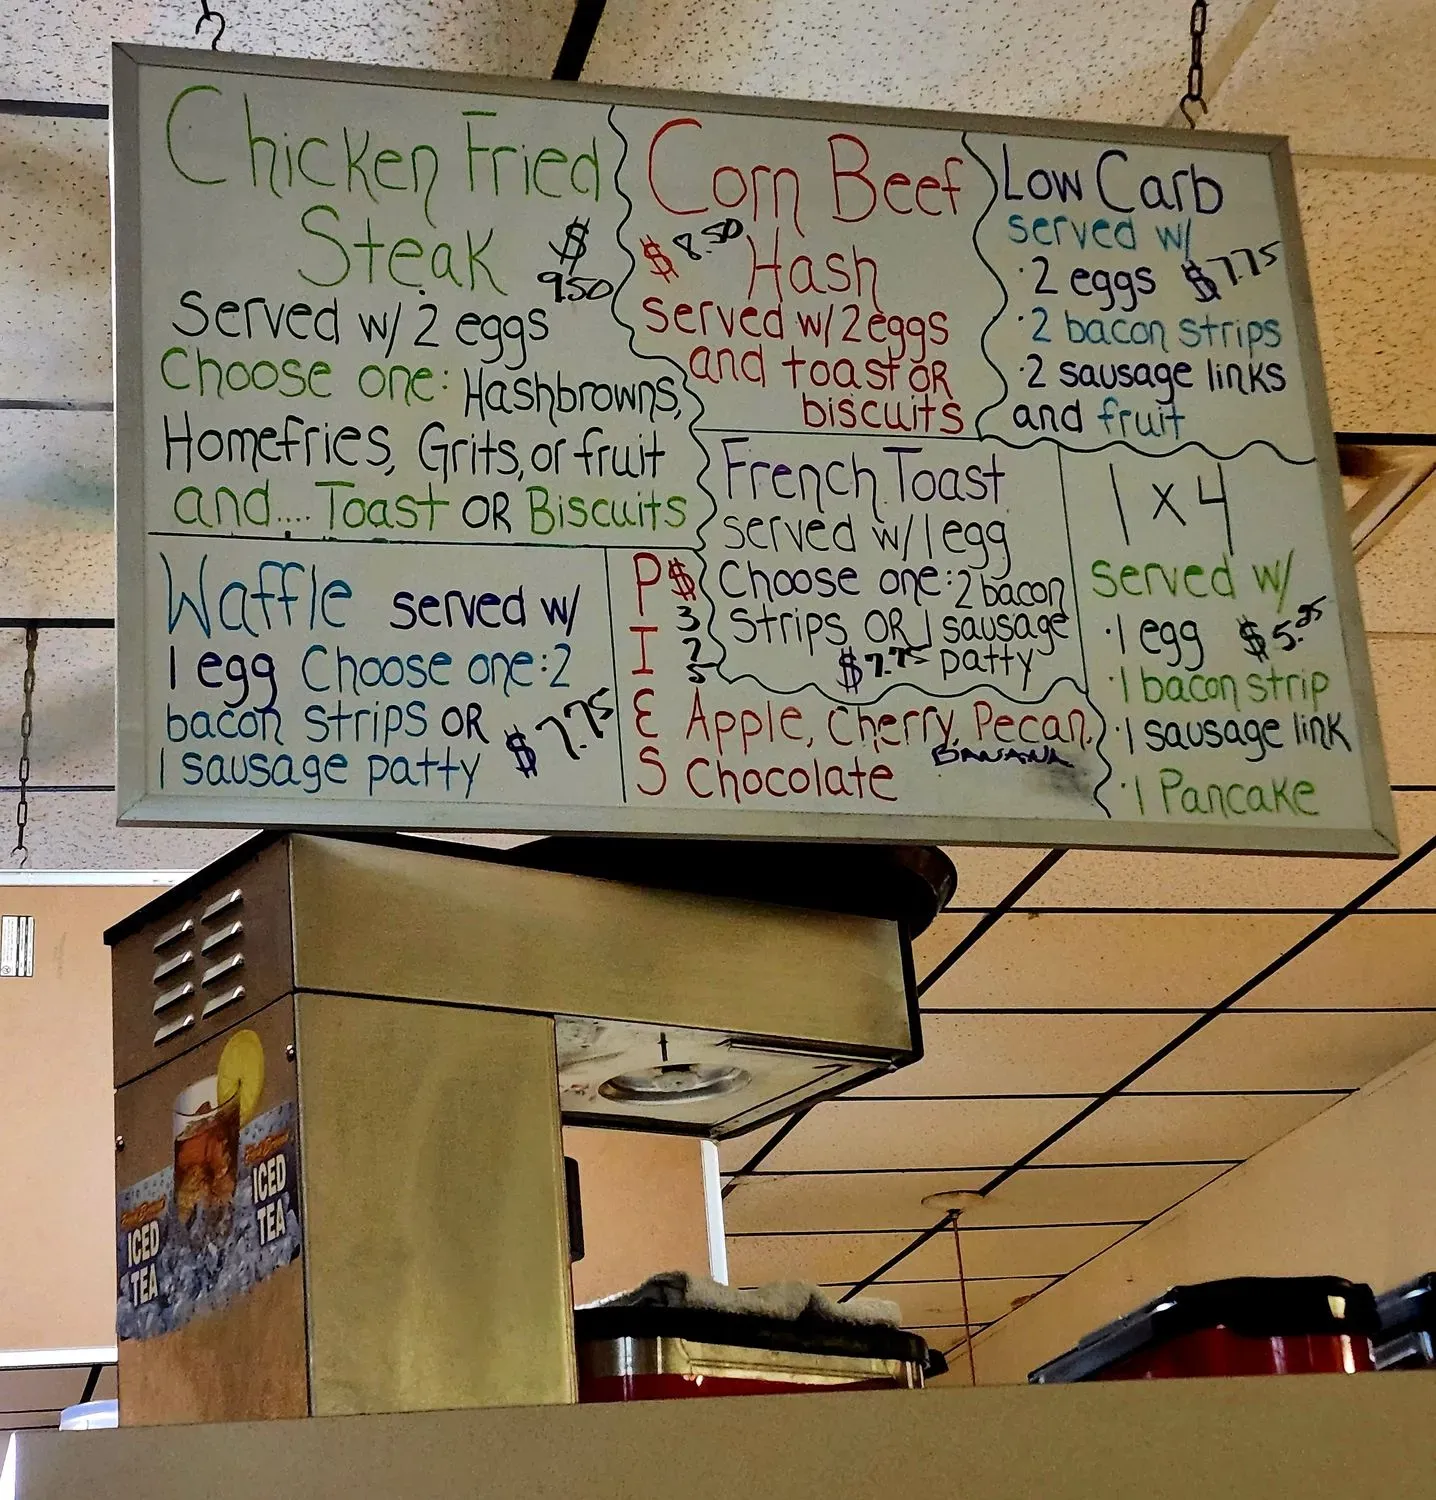 Chicken Fried
Steak $
950
served w/ 2 eggs
Choose one: Hashbrowns,
Homefries, Grits, or fruit
and.... Toast OR Biscuits
Corn Beef
$8.50 Hash
served w/ 2 eggs
and toast OR
biscuits
Low Carb
served w/
·2 eggs $7.75
·2 bacon strips
·2 sausage links
and fruit
Waffle served w/
1 egg Choose one: 2
bacon strips OR
1 sausage patty $7.75
PIES
$325
Apple, Cherry, Pecan,
BANANA
Chocolate
French Toast
served w/ 1 egg
Choose one: 2 bacon
strips OR 1 sausage
$7.75 patty
1 x 4
served w/
·1 egg
·1 bacon strip
·1 sausage link
·1 Pancake
ICED
TEA
ICED
TEA